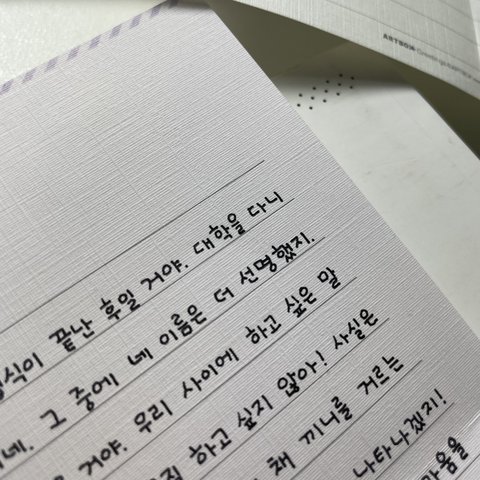 ARTBOX
식이 끝난 후일 거야. 대학을 다니
네. 그 중에 네 이름은 더 선명했지.
거야. 우리 사이에 하고 싶은 말
하고 싶지 않아! 사실은
채 끼니를 거르는
나타나겠지!
마음을